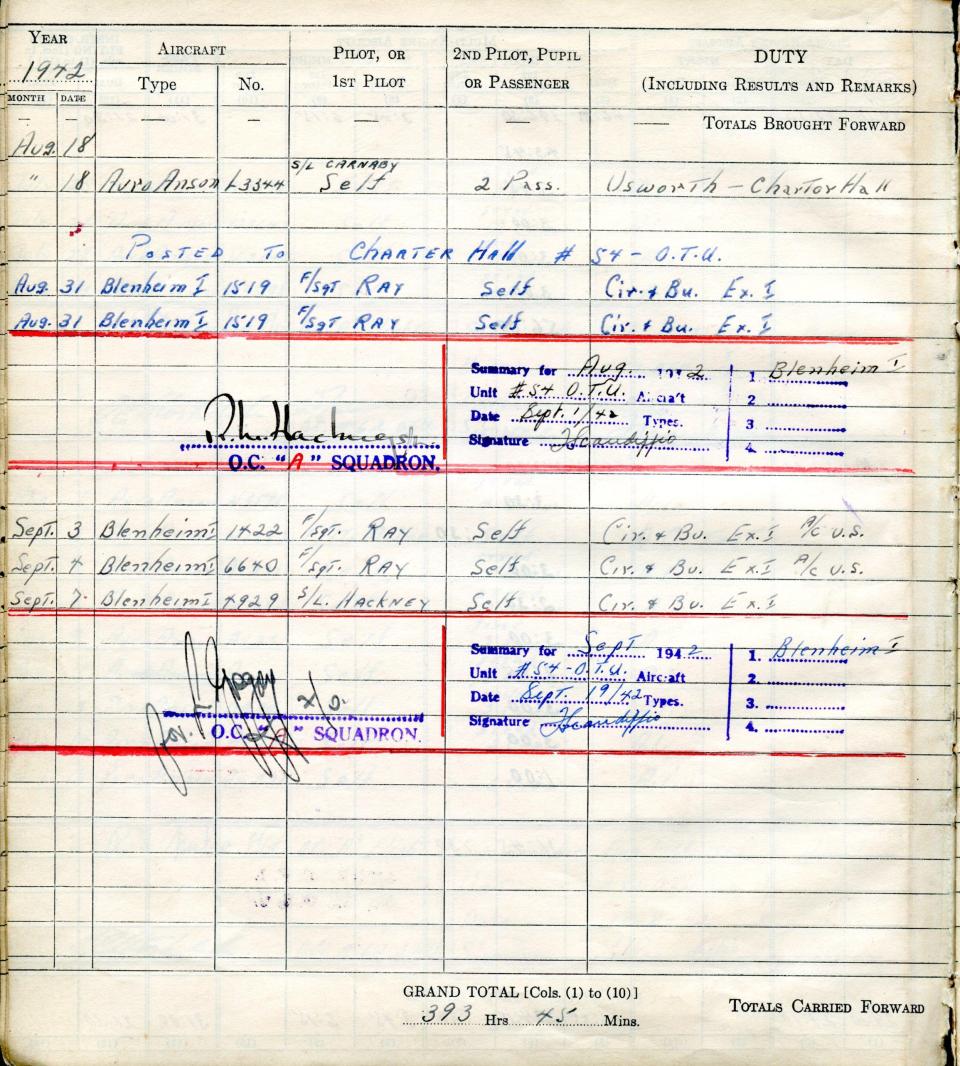 YEAR AIRCRAFT PILOT, OR 2ND PILOT, PUPIL DUTY
1942 Type No. 1ST PILOT OR PASSENGER (INCLUDING RESULTS AND REMARKS)
MONTH DATE
— — — — — — —— TOTALS BROUGHT FORWARD
Aug. 18
S/L CARNABY
" 18 Avro Anson L3344 Self 2 Pass. Usworth - Chartor Hall
POSTED TO CHARTER Hall # 54 - O.T.U.
Aug. 31 Blenheim I 1519 F/Sgt RAY Self Cir. & Bu. Ex. I
Aug. 31 Blenheim I 1519 F/Sgt RAY Self Cir. & Bu. Ex. I
Summary for Aug. 1942 1. Blenheim I
Unit #54 O.T.U. Aircraft 2
Date Sept. 1/42 Types. 3
Signature 4.
O.C. "A" SQUADRON.
Sept. 3 Blenheim I 1422 F/Sgt. RAY Self Cir. & Bu. Ex. I A/C U.S.
Sept. 4 Blenheim I 6640 F/Sgt. RAY Self Cir. & Bu. Ex. I A/C U.S.
Sept. 7 Blenheim I 4929 S/L. HACKNEY Self Cir. & Bu. Ex. I
Summary for Sept 1942 1. Blenheim I
Unit #54-O.T.U. Aircraft 2.
Date Sept. 19/42 Types. 3.
Signature 4.
for
O.C. "A" SQUADRON.
GRAND TOTAL [Cols. (1) to (10)]
393 Hrs 45 Mins. TOTALS CARRIED FORWARD